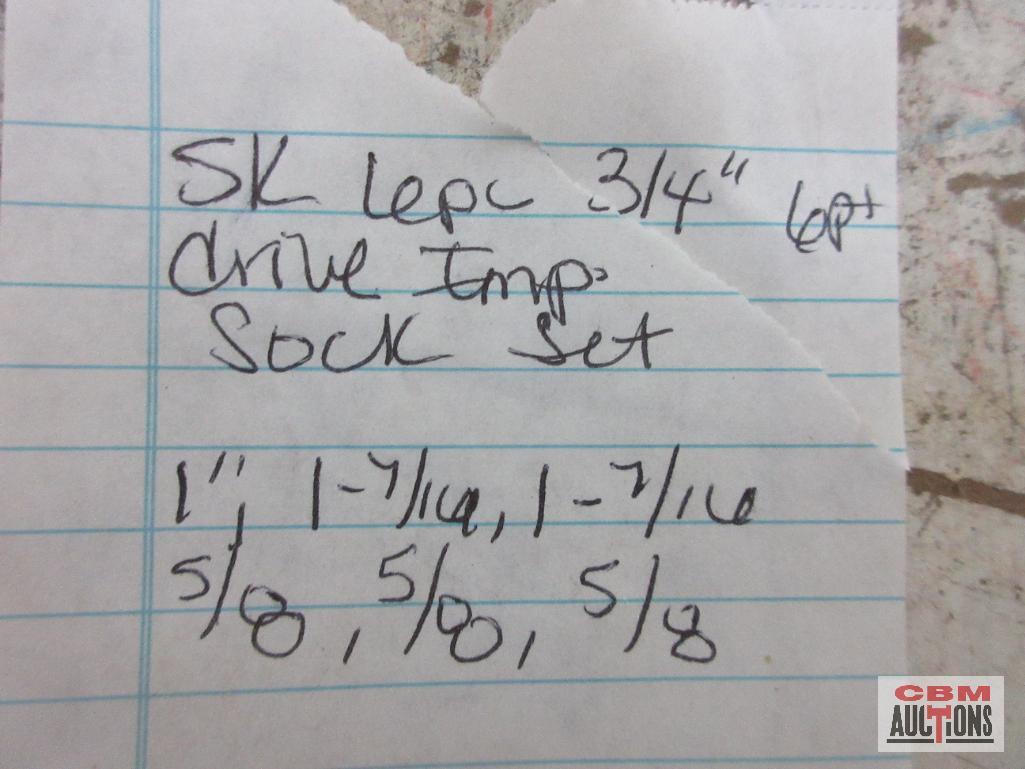 SK 6pc 3/4" 6pt
drive Imp.
Sock Set
1", 1-7/16, 1-7/16
5/8, 5/8, 5/8
CBM
AUCTIONS